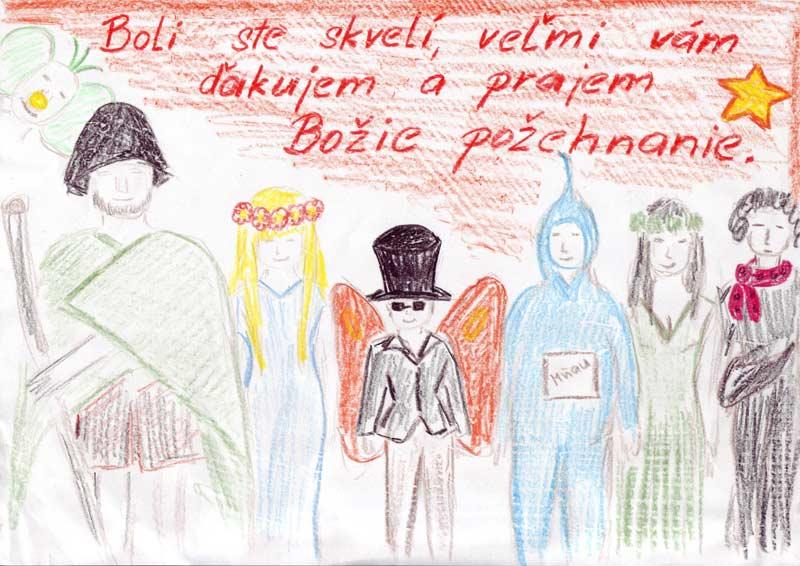 Boli ste skvelí, veľmi vám
ďakujem a prajem
Božie požehnanie.
Mňau